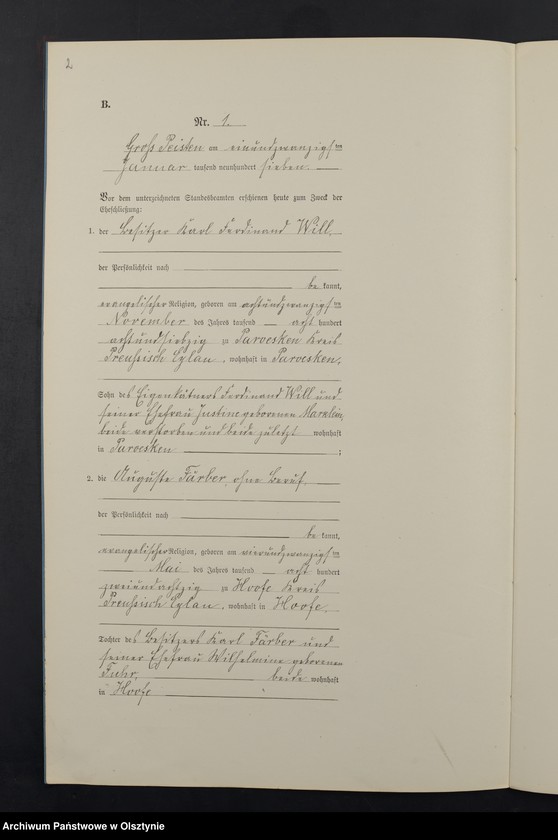 2
B.
Nr. 1.
Gross Peisten am einundzwanzigsten
Januar tausend neunhundert sieben.
Vor dem unterzeichneten Standesbeamten erschienen heute zum Zweck der
Eheschließung:
1. der Besitzer Karl Ferdinand Will,
der Persönlichkeit nach
be kannt,
evangelischer Religion, geboren am achtundzwanzigsten
November des Jahres tausend acht hundert
achtundsiebzig zu Parvesken Kreis
Preußisch Eylau, wohnhaft in Parvesken,
Sohn des Eigenkätners Ferdinand Will und
seiner Ehefrau Justine geborenen
beide verstorben und beide zuletzt wohnhaft
in Parvesken ;
2. die Auguste Färber, ohne Beruf,
der Persönlichkeit nach
be kannt,
evangelischer Religion, geboren am vierundzwanzigsten
Mai des Jahres tausend acht hundert
zweiundachtzig zu Hoofe Kreis
Preußisch Eylau, wohnhaft in Hoofe,
Tochter des Besitzers Karl Färber und
seiner Ehefrau Wilhelmine geborenen
Fuhr, beide wohnhaft
in Hoofe
Archiwum Państwowe w Olsztynie